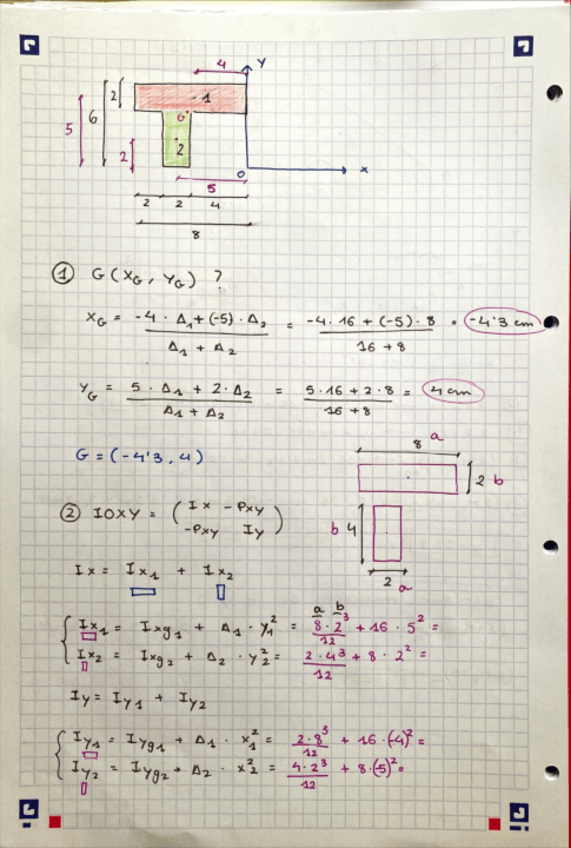 4 Y
2 1
5 6 G
2 2
O x
5
2 2 4
8
① G(XG, YG) ?
XG = -4 · A1 + (-5) · A2 / A1 + A2 = -4 · 16 + (-5) · 8 / 16 + 8 = -4'3 cm
YG = 5 · A1 + 2 · A2 / A1 + A2 = 5 · 16 + 2 · 8 / 16 + 8 = 4 cm
G = (-4'3, 4)
8 a
2 b
② IOXY = ( Ix -Pxy
-Pxy Iy )
b 4
2 a
Ix = Ix1 + Ix2
a b
Ix1 = Ixg1 + A1 · y1² = 8 · 2³ / 12 + 16 · 5² =
Ix2 = Ixg2 + A2 · y2² = 2 · 4³ / 12 + 8 · 2² =
Iy = Iy1 + Iy2
Iy1 = Iyg1 + A1 · x1² = 2 · 8³ / 12 + 16 · (-4)² =
Iy2 = Iyg2 + A2 · x2² = 4 · 2³ / 12 + 8 · (-5)² =